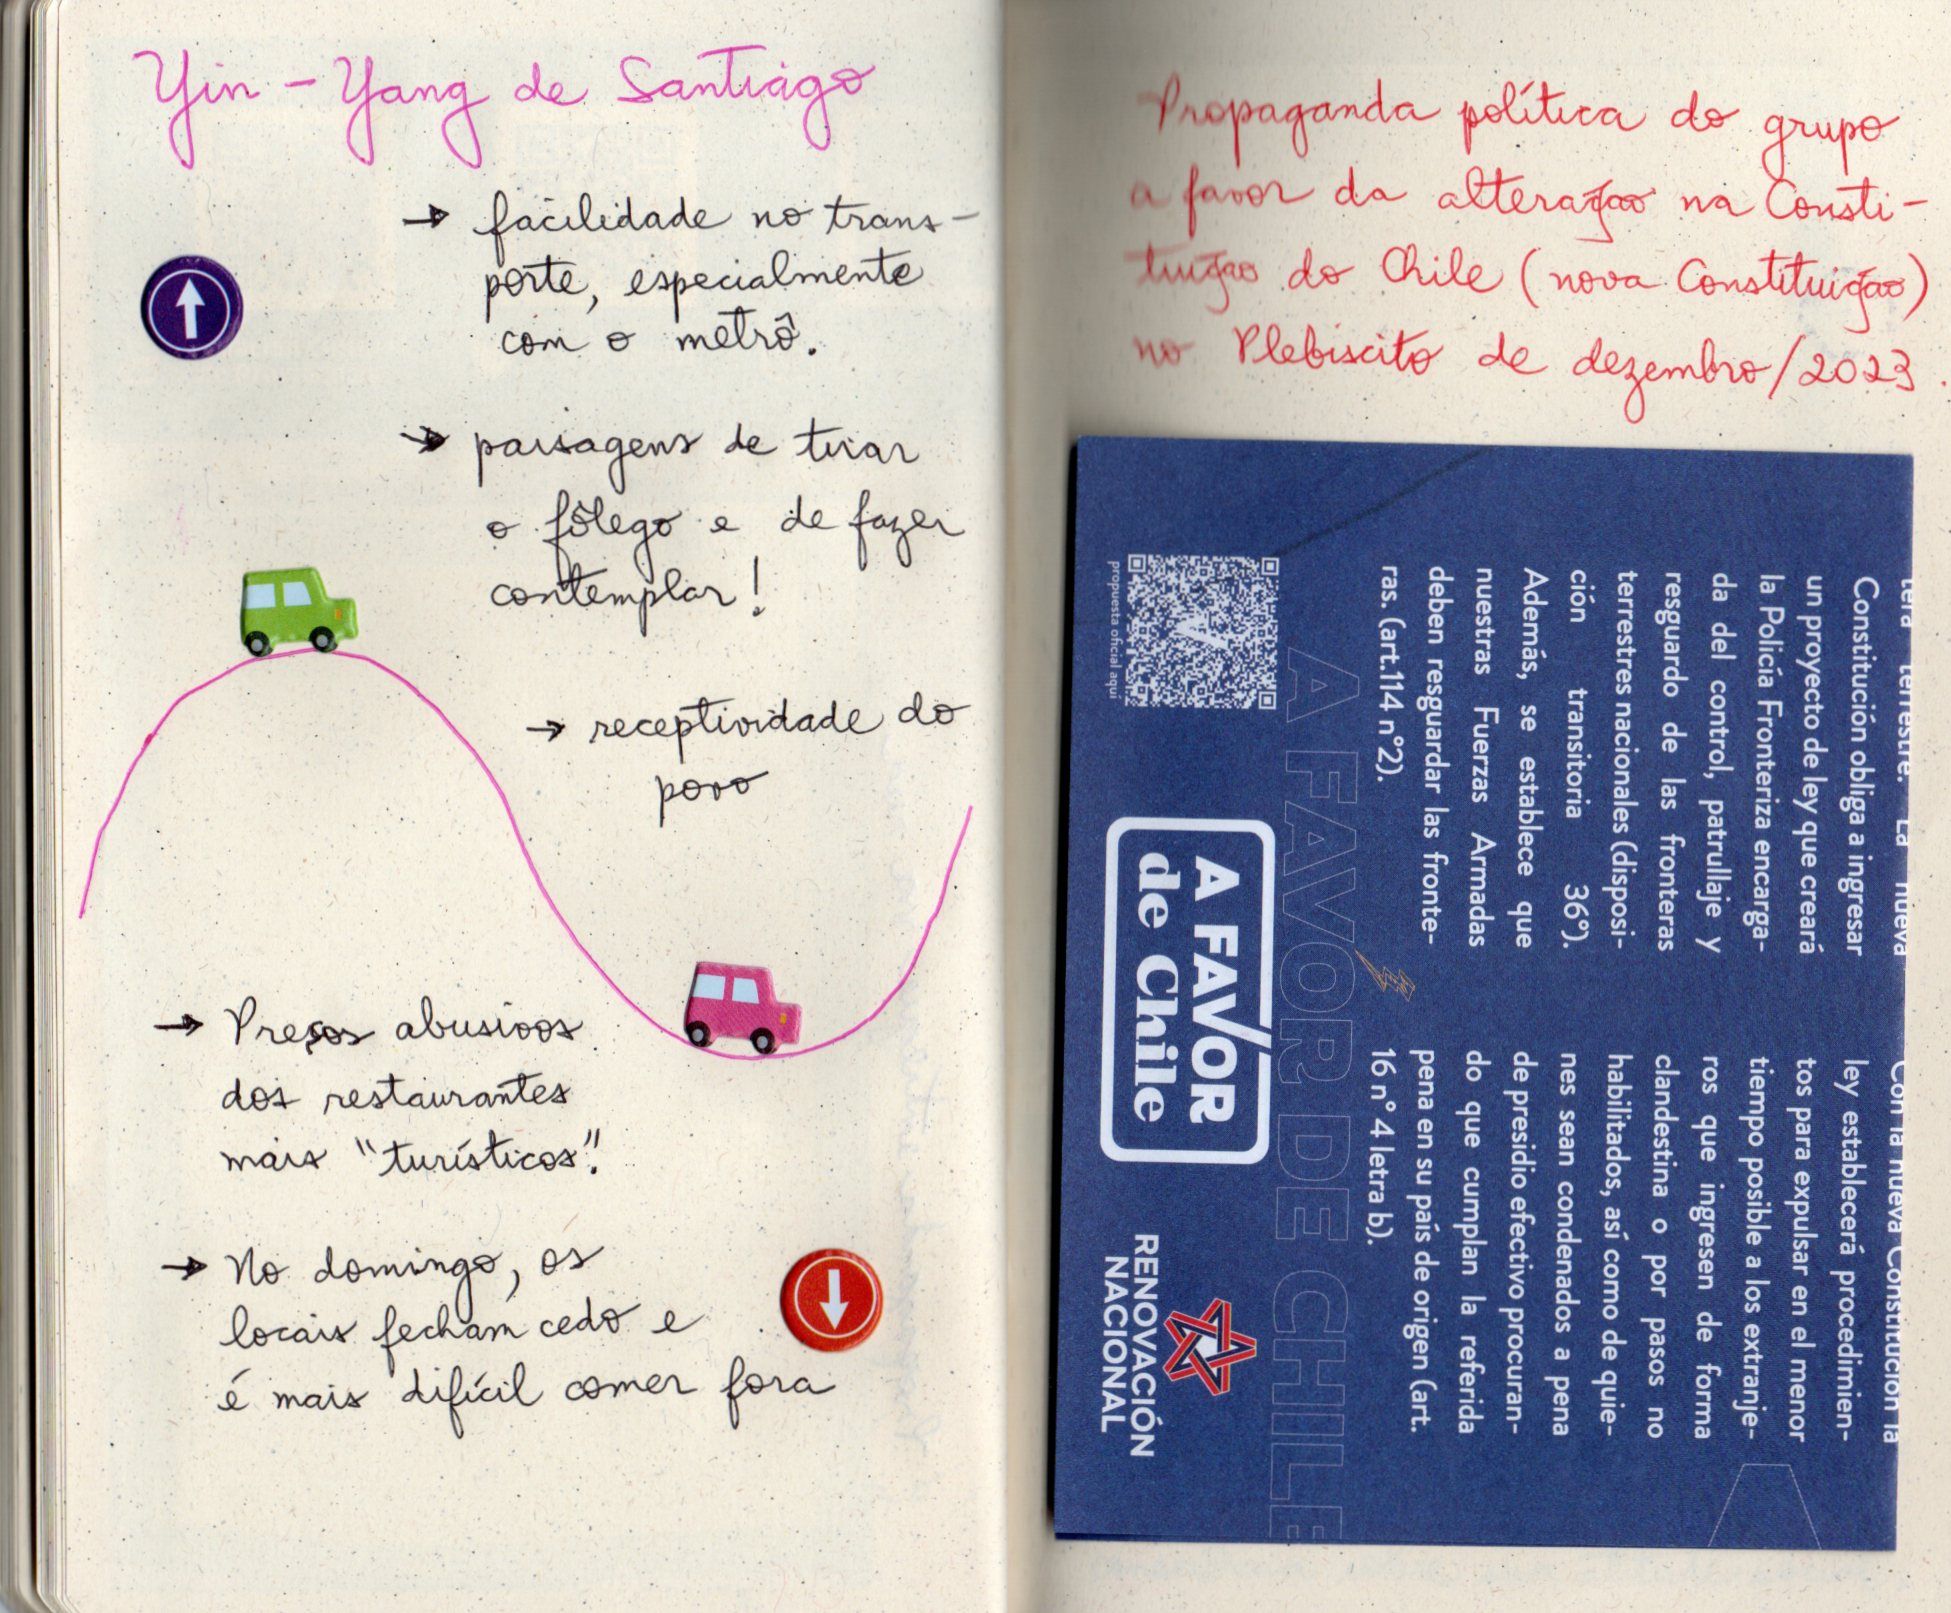 Yin - Yang de Santiago
→ facilidade no trans-
porte, especialmente
com o metrô.
→ paisagens de tirar
o fôlego e de fazer
contemplar!
→ receptividade do
povo
→ Preços abusivos
dos restaurantes
mais "turísticos".
→ No domingo, os
locais fecham cedo e
é mais difícil comer fora
Propaganda política do grupo
a favor da alteração na Consti-
tuição do Chile (nova Constituição)
no Plebiscito de dezembro/2023.
terrestre. La nueva
Constitución obliga a ingresar
un proyecto de ley que creará
la Policía Fronteriza encarga-
da del control, patrullaje y
resguardo de las fronteras
terrestres nacionales (disposi-
ción transitoria 36°).
Además, se establece que
nuestras Fuerzas Armadas
deben resguardar las fronte-
ras. (art.114 n°2).
Con la nueva Constitución la
ley establecerá procedimien-
tos para expulsar en el menor
tiempo posible a los extranje-
ros que ingresen de forma
clandestina o por pasos no
habilitados, así como de quie-
nes sean condenados a pena
de presidio efectivo procuran-
do que cumplan la referida
pena en su país de origen (art.
16 n° 4 letra b).
A FAVOR DE CHILE
propuesta oficial aquí
A FAVOR
de Chile
RENOVACIÓN
NACIONAL